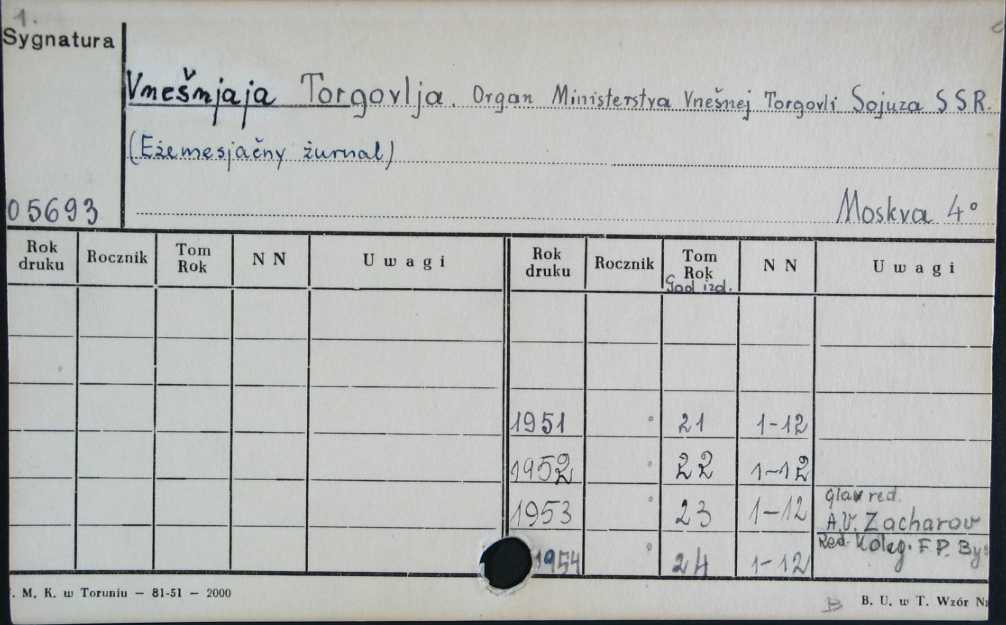 1.
Sygnatura
Vnešnjaja Torgovlja. Organ Ministerstva Vnešnej Torgovli Sojuza SSR.
(Eżemesjačny żurnal)
05693
Moskva 4°
Rok druku Rocznik Tom Rok N N Uwagi Rok druku Rocznik Tom Rok God izd. N N Uwagi
1951 21 1-12
1952 22 1-12
1953 23 1-12 glav red. A.V. Zacharov
1954 24 1-12 Red. Koleg. F P. Bys
. M. K. w Toruniu — 81-51 — 2000
B B. U. w T. Wzór Nr